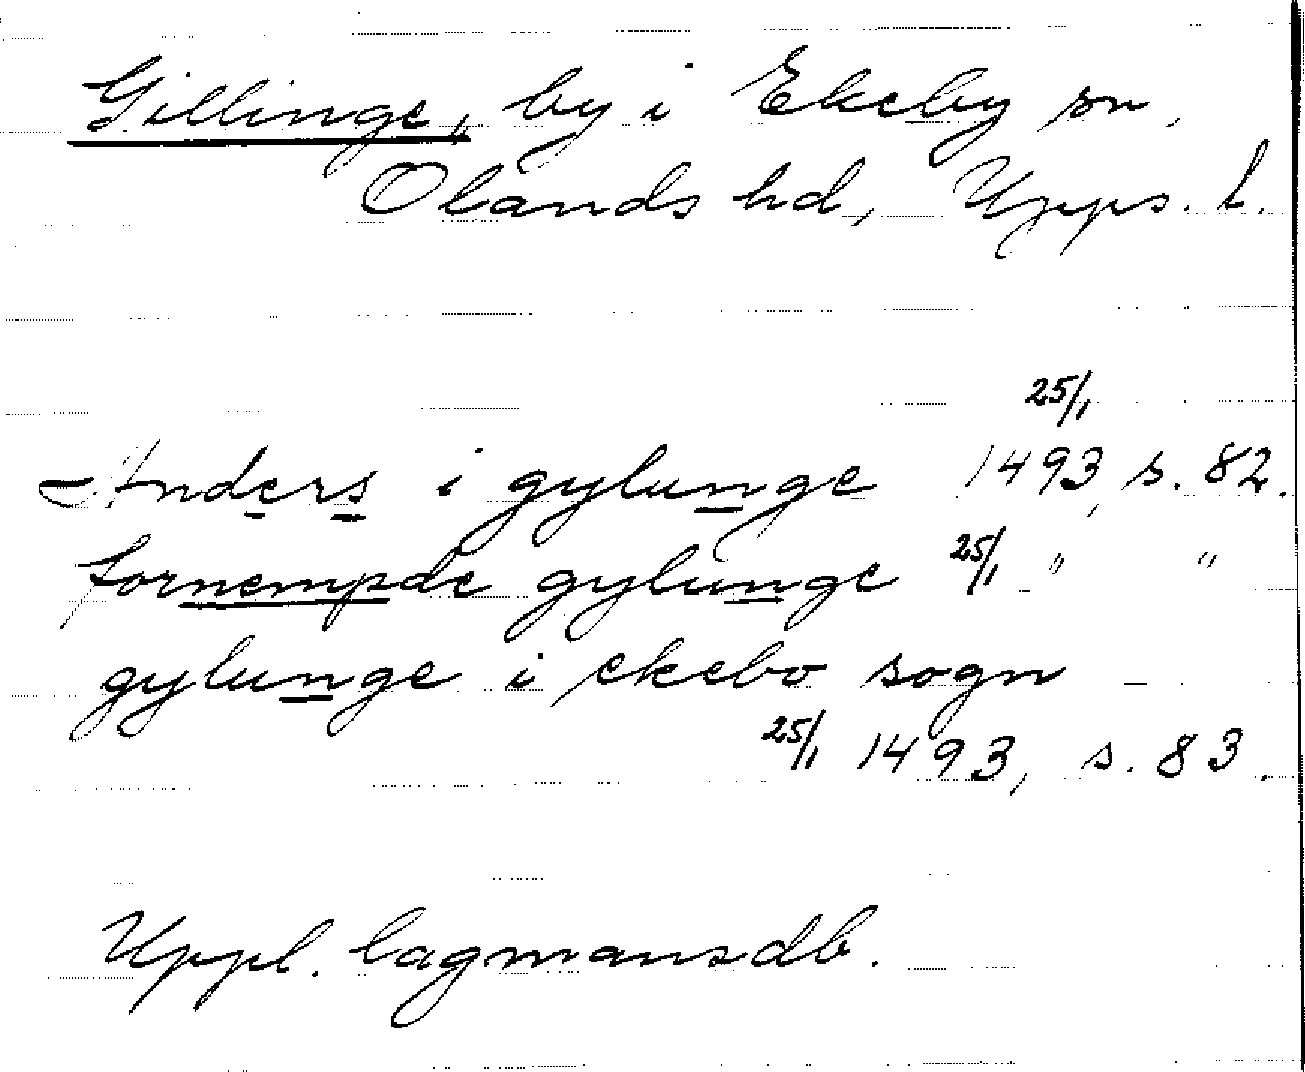 Gillinge, by i Ekeby sn,
Olands hd, Upps. l.
25/1
Anders i gylunge 1493, s. 82.
fornempde gylunge 25/1 " "
gylunge i ekebo sogn –
25/1 1493, s. 83.
Uppl. lagmansdb.